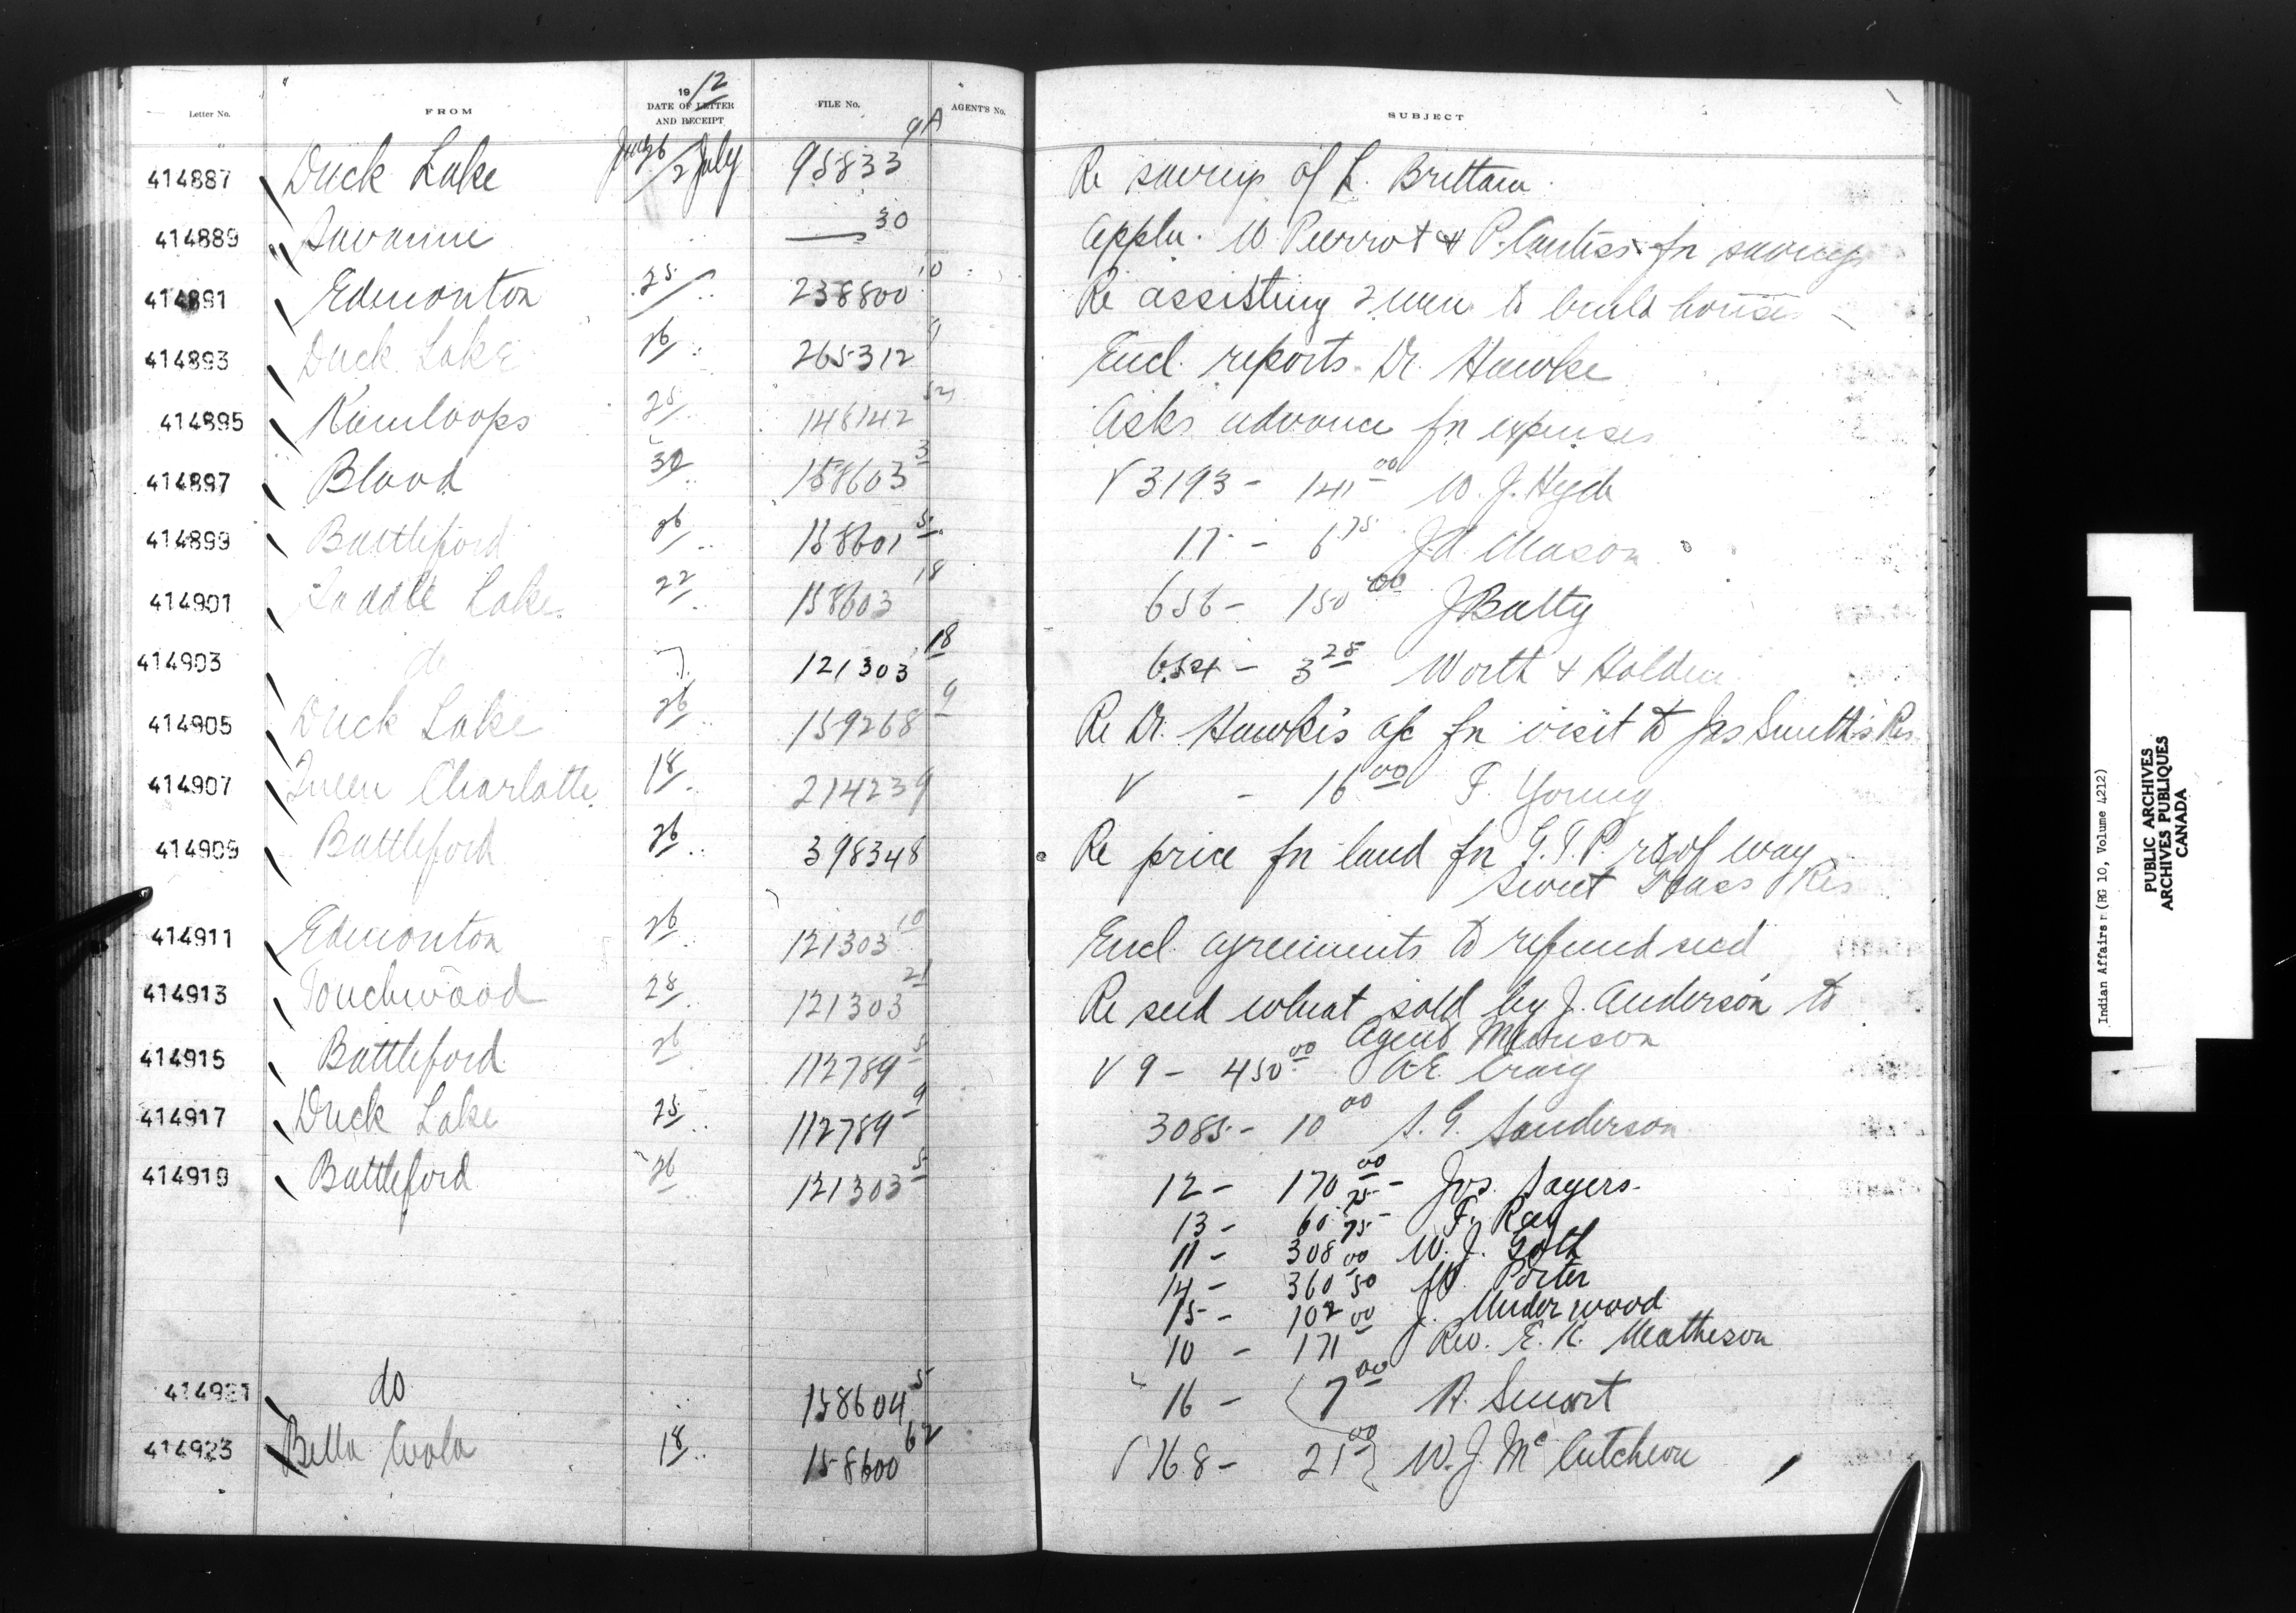 Letter No. FROM 1912 DATE OF LETTER AND RECEIPT FILE No. AGENT'S No. SUBJECT
414887 Duck Lake June 26/2 July 95833 9A Re savings of L. Brittain
414889 Savanne " 30 Appln. W. Pierrot & P. for savings
414891 Edmonton 25/ " 238800 10 Re assisting 2 men to build houses
414893 Duck Lake 26/ " 265312 9 Encl. reports Dr. Hawke
414895 Kamloops 25/ " 148142 Asks advance for expenses
414897 Blood 30 " 158603 3 V 3193 - 141 00 W. J. Hyde
414899 Battleford 26/ " 158601 5 17 - 6 75 J. A. Mason
414901 Saddle Lake 22/ " 158603 18 656 - 150 00 J Batty
414903 do " 121303 18 654 - 3 25 Worth & Holden
414905 Duck Lake 26/ " 159268 9 Re Dr. Hawke's a/c for visit to Jas Smith's Res.
414907 Queen Charlotte 18/ " 214239 V - 16 00 F. Young
414909 Battleford 26/ " 398348 Re price for land for G.T.P. rt of way
Sweet Grass Res
414911 Edmonton 26/ " 121303 10 Encl. agreements to refund seed
414913 Touchwood 28/ " 121303 21 Re seed wheat sold by J. Anderson to
Agent Murison
414915 Battleford 26 " 112789 5 V 9 - 450 00 A.E. Craig
414917 Duck Lake 25/ " 112789 9 3085 - 10 00 S. G. Sanderson
414919 Battleford 26 " 121303 5 12 - 170 00 - Jos. Sayers.
13 - 60 75 - F. Ray
11 - 308 75 W. J. Gott
14 - 360 00 W. Porter
15 - 102 50 J. Underwood
10 - 171 00 Rev. E. K. Matheson
414921 do " 158604 5 16 - 7 00 R. Smart
414923 Bella Coola 18/ " 158600 62 V 168 - 21 00 W. J. McCutcheon
Indian Affairs (RG 10, Volume 4212)
PUBLIC ARCHIVES
ARCHIVES PUBLIQUES
CANADA